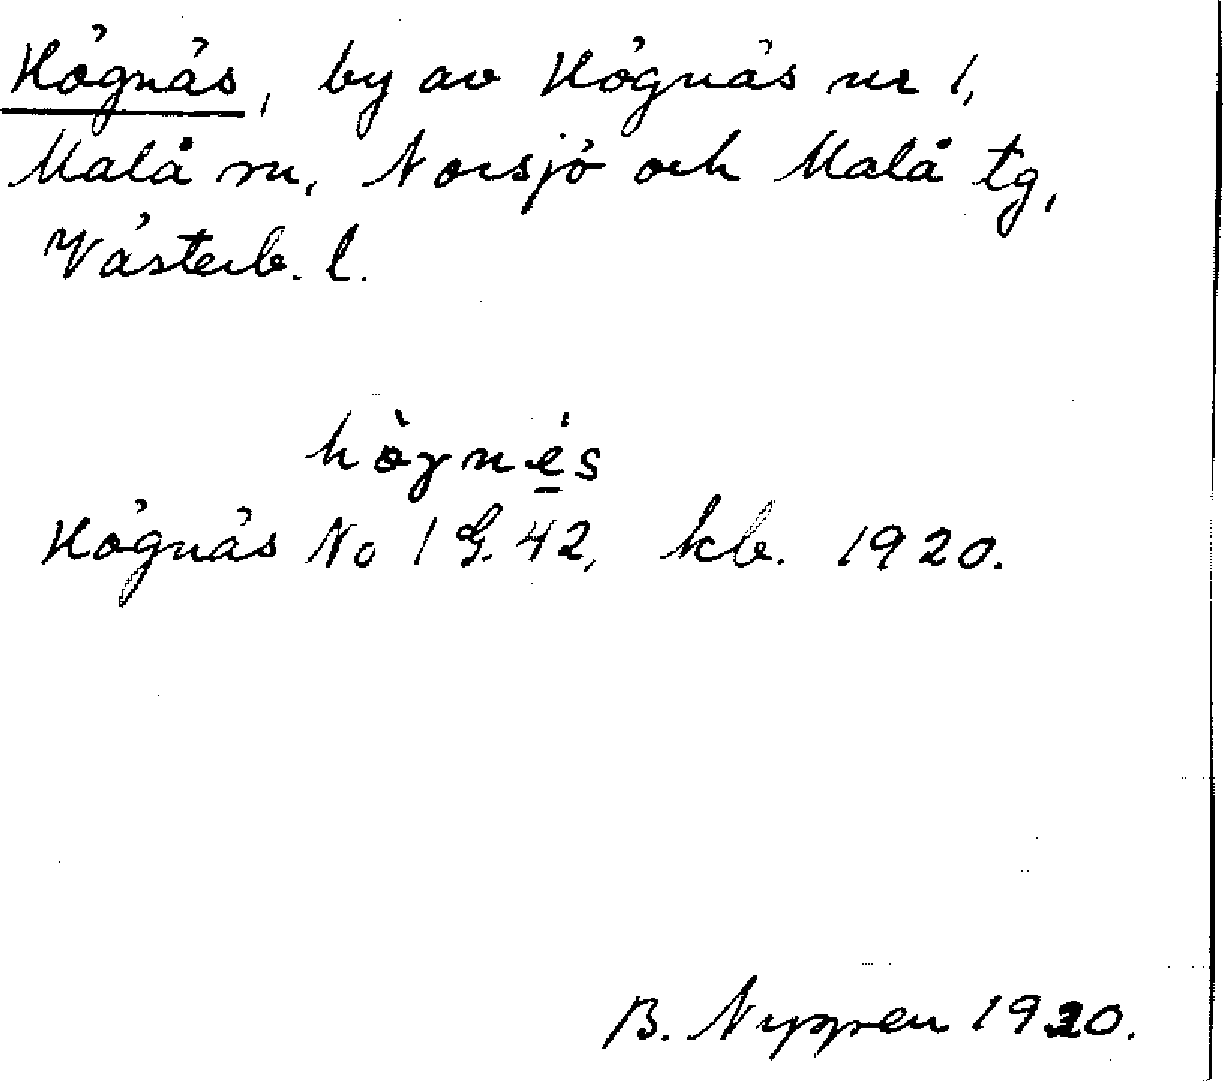 Högnäs, by av Högnäs nr 1,
Malå sn, Norsjö och Malå tg,
Västerb. l.
hògnés
Högnäs No 1 G. 42, kb. 1920.
B. Nygren 1920.